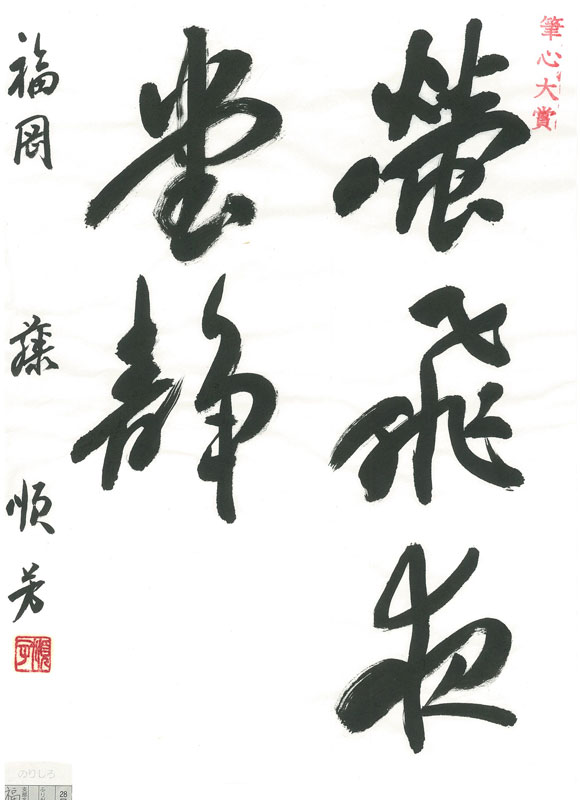 筆心大賞
螢飛夜
堂静
福岡 藤 順芳
のりしろ
28
福